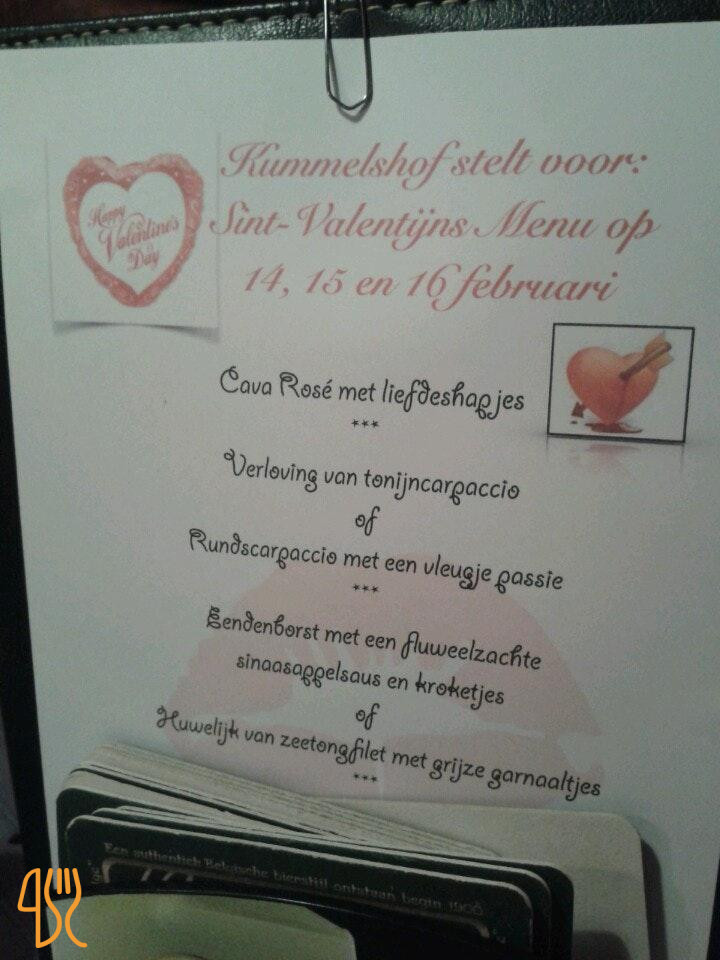 Happy
Valentine's
Day
Kummelshof stelt voor:
Sint-Valentijns Menu op
14, 15 en 16 februari
Cava Rosé met liefdeshapjes
***
Verloving van tonijncarpaccio
of
Rundscarpaccio met een vleugje passie
***
Eendenborst met een fluweelzachte
sinaasappelsaus en kroketjes
of
Huwelijk van zeetongfilet met grijze garnaaltjes
***
Een authentiek Belgische bierstijl ontstaan begin 1900